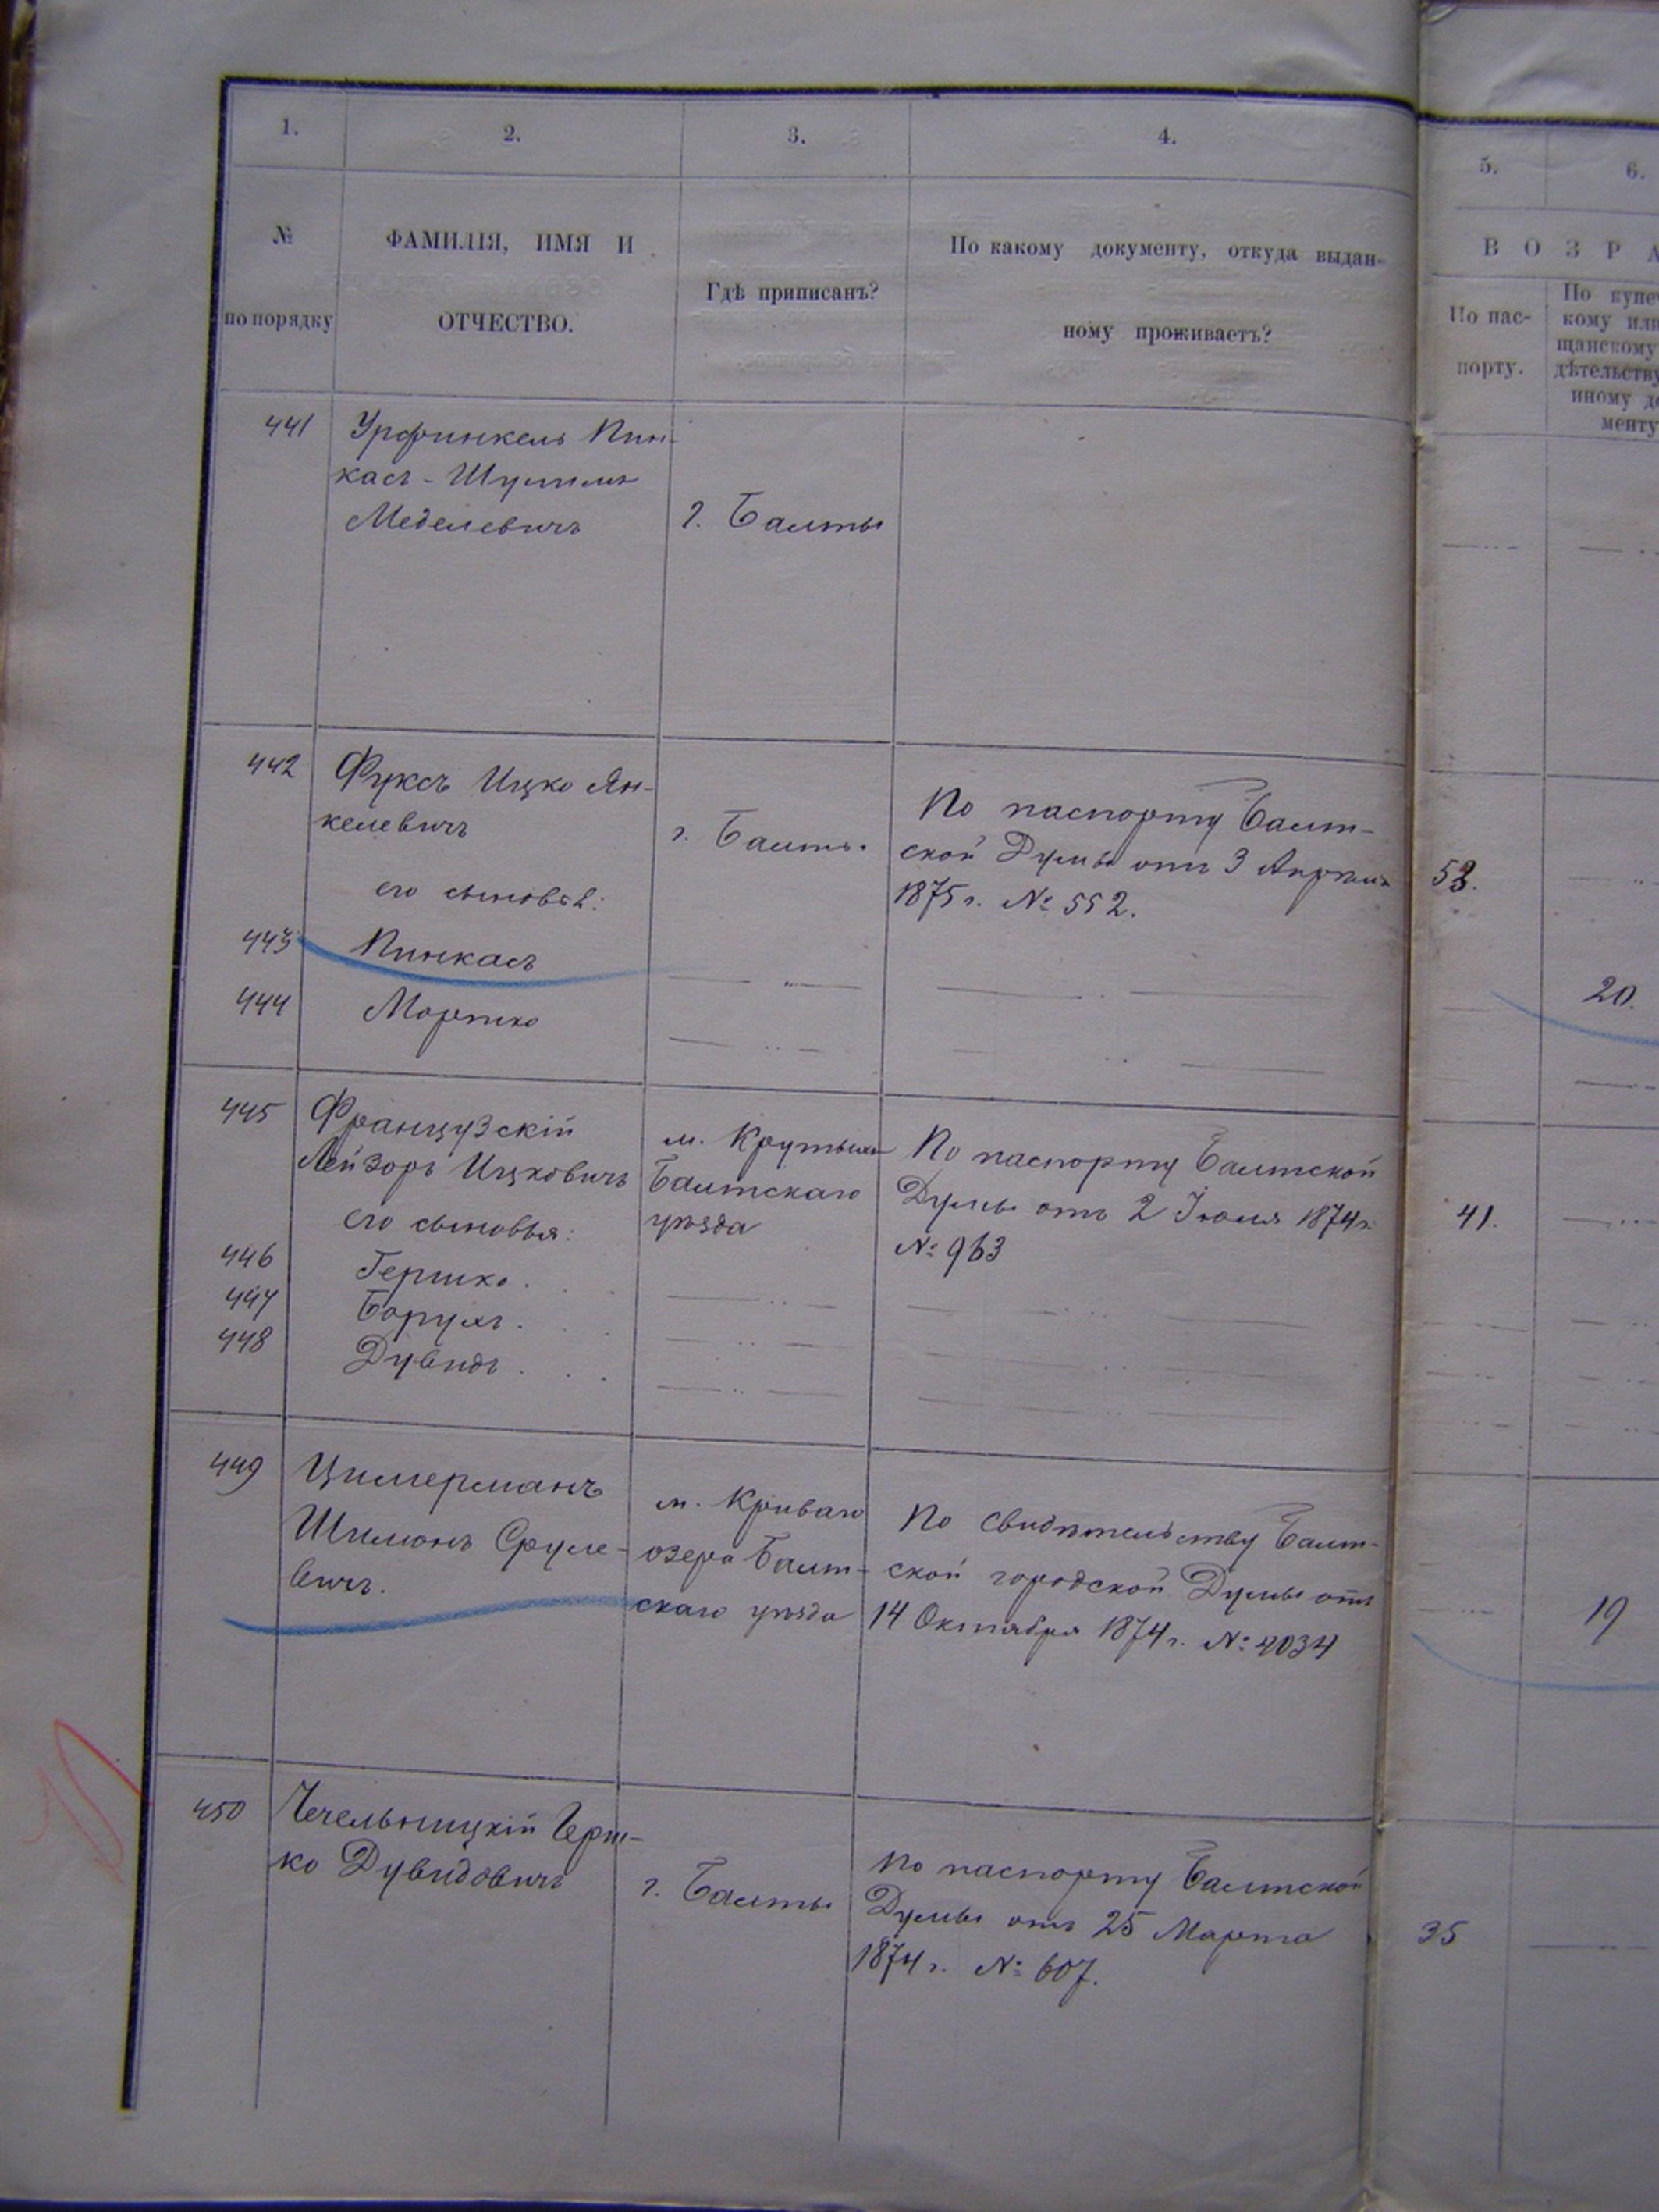 1.
2.
3.
4.
5.
6.
№
по порядку
ФАМИЛІЯ, ИМЯ И
ОТЧЕСТВО.
Гдѣ приписанъ?
По какому документу, откуда выдан-
ному проживаетъ?
ВОЗРА
По пас-
порту.
По купеч
кому или
щанскому
дѣтельству
иному до
менту
441
Урфинкель Пин-
касъ-Шулимъ
Меделевичъ
г. Балты
442
Фуксъ Ицко Ян-
келевичъ
г. Балты
По паспорту Балт-
ской Думы отъ 3 Апрѣля
1875 г. № 552.
53.
его сыновья:
443
Пинкасъ
20.
444
Мортко
445
Французскій
Лейзоръ Ицковичъ
м. Крутыхъ
Балтскаго
уѣзда
По паспорту Балтской
Думы отъ 2 Іюля 1874 г.
№ 963
41.
его сыновья:
446
Гершко
447
Борухъ
448
Дувидъ
449
Цимерманъ
Шимонъ Сруле-
вичъ.
м. Криваго
озера Балт-
скаго уѣзда
По свидѣтельству Балт-
ской городской Думы отъ
14 Октября 1874 г. № 4034
19
450
Чечельницкій Герш-
ко Дувидовичъ
г. Балты
По паспорту Балтской
Думы отъ 25 Марта
1874 г. № 607.
35